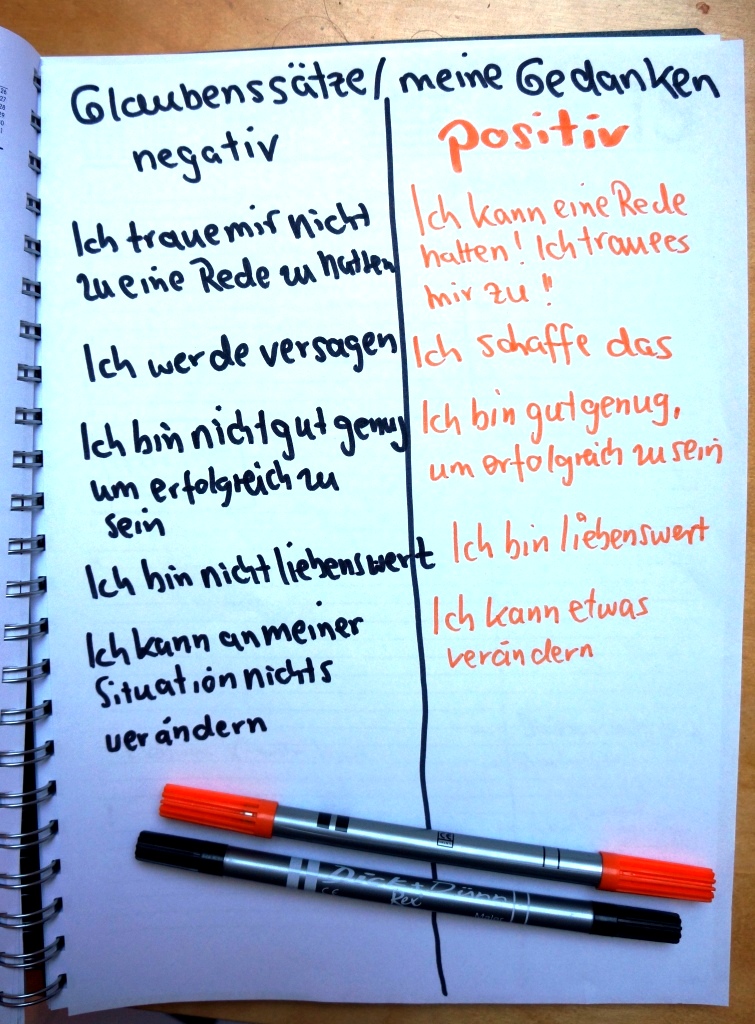 Glaubenssätze/meine Gedanken
negativ
Ich traue mir nicht
zu eine Rede zu halten
Ich werde versagen
Ich bin nicht gut genug
um erfolgreich zu
sein
Ich bin nicht liebenswert
Ich kann an meiner
Situation nichts
verändern
positiv
Ich kann eine Rede
halten! Ich traue es
mir zu!!
Ich schaffe das
Ich bin gut genug,
um erfolgreich zu sein
Ich bin liebenswert
Ich kann etwas
verändern
CE
Dick + Dünn
Rex
CE
26
27
28
29
30